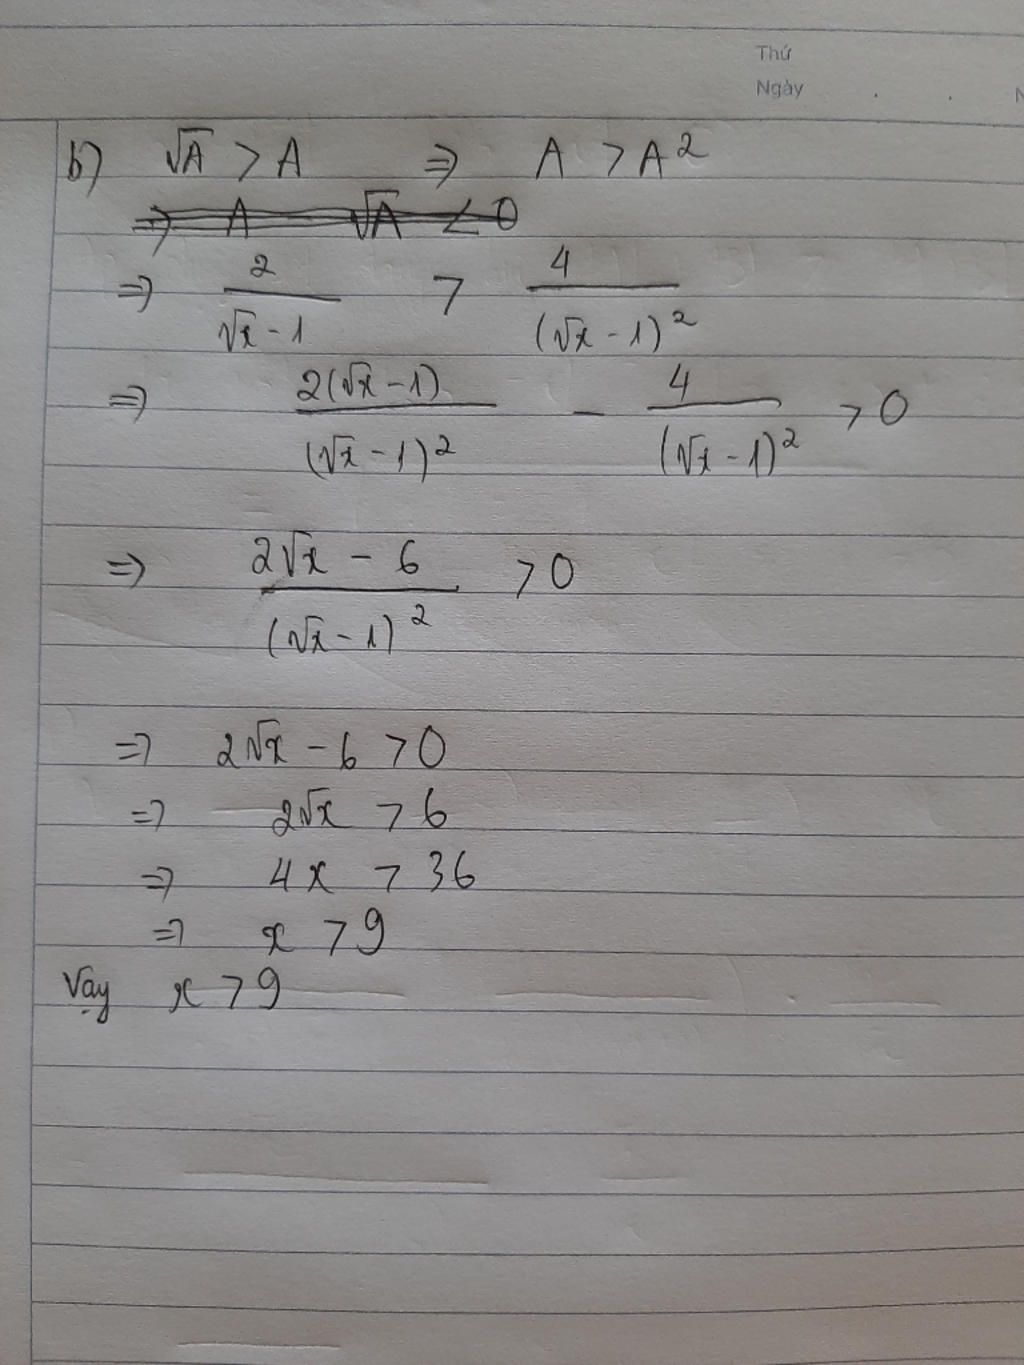 Thứ
Ngày
b) √A > A ⇒ A > A²
⇒ A √A < 0
⇒ 2/(√x - 1) > 4/(√x - 1)²
⇒ 2(√x - 1)/(√x - 1)² - 4/(√x - 1)² > 0
⇒ (2√x - 6)/(√x - 1)² > 0
⇒ 2√x - 6 > 0
⇒ 2√x > 6
⇒ 4x > 36
⇒ x > 9
Vậy x > 9